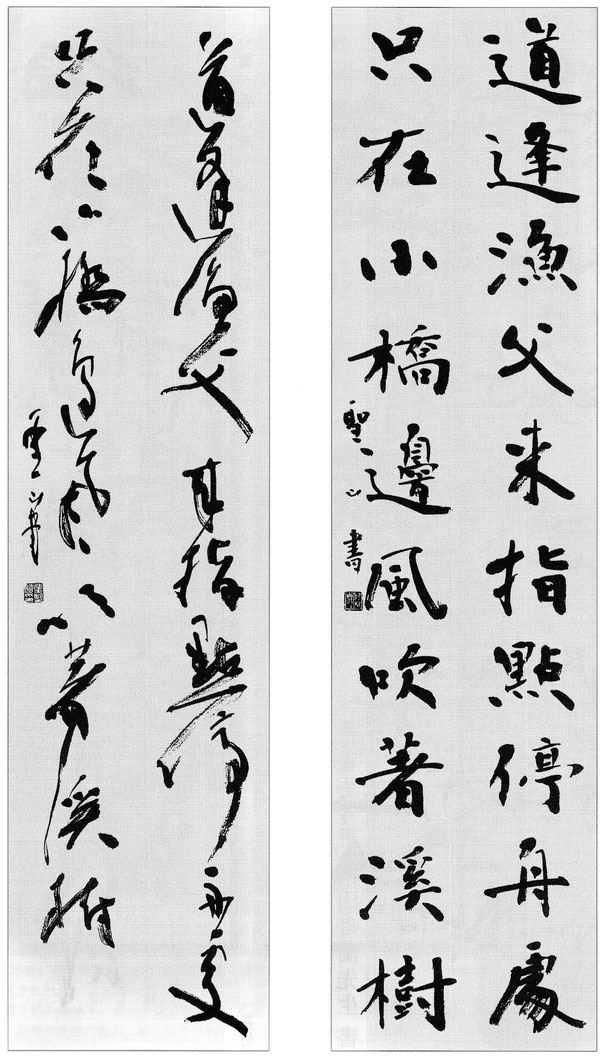 道逢漁父来指點停舟處
只在小橋邊風吹著溪樹
聖山書
道逢漁父来指點停舟處
只在小橋邊風吹著溪樹
聖山書